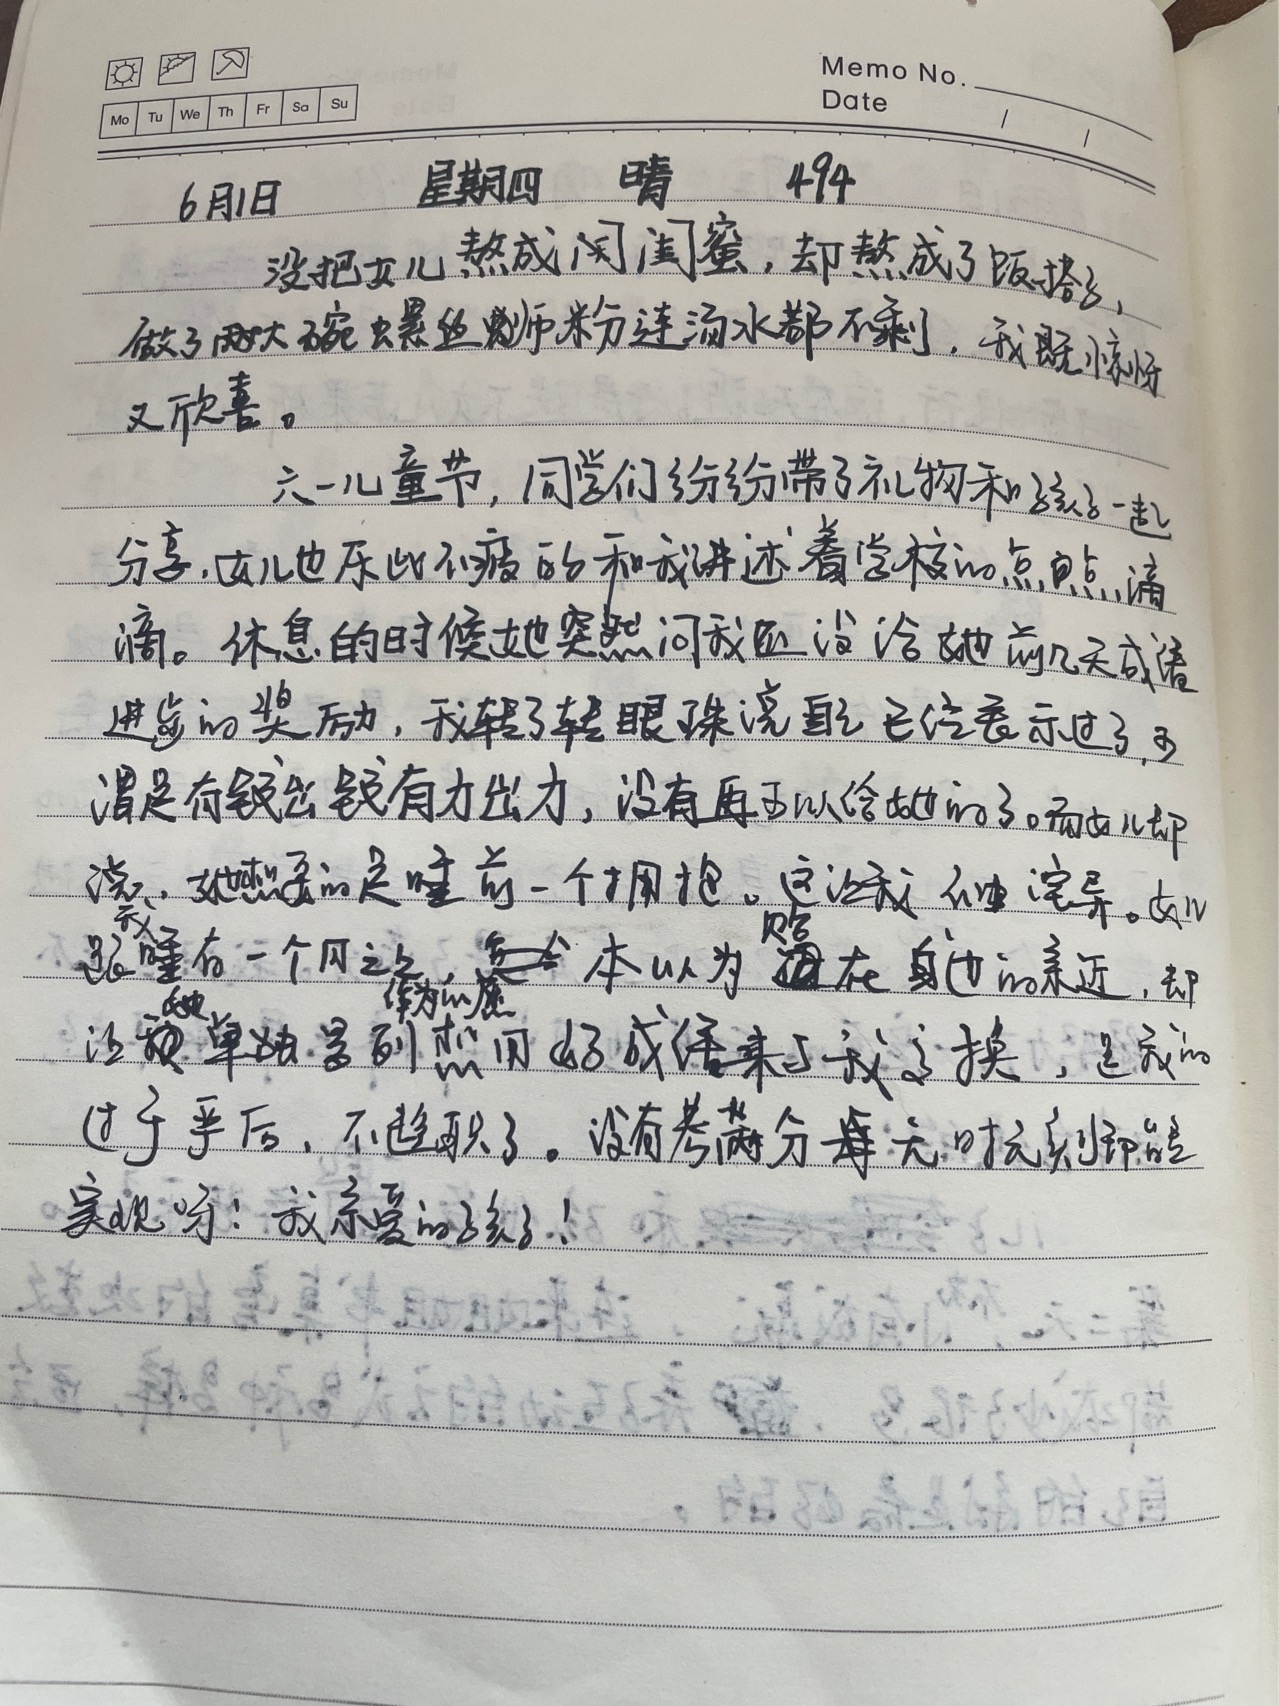 Memo No.
Date / /
Mo Tu We Th Fr Sa Su
6月1日 星期四 晴 494
没把女儿熬成闺蜜，却熬成了饭搭子，
做了两大碗螺丝蛳粉连汤水都不剩，我既惊讶
又欣喜。
六一儿童节，同学们纷纷带了礼物和孩子一起
分享，女儿也乐此不疲的和我讲述着学校的点点滴
滴。休息的时候她突然问我还没给她前几天成绩
进步的奖励，我转了转眼珠说自己已经表示过了，可
谓是有钱出钱有力出力，没有再可以给她的了。而女儿却
说，她想要的是睡前一个拥抱。这让我有些诧异。女儿
跟我睡有一个月之久，本以为陪在身边的亲近，却
让她单独受到作为心愿想用好成绩来与我交换，是我的
过于乎后，不趁职了。没有考满分每无时无刻都能
实现呀！我亲爱的孩子！